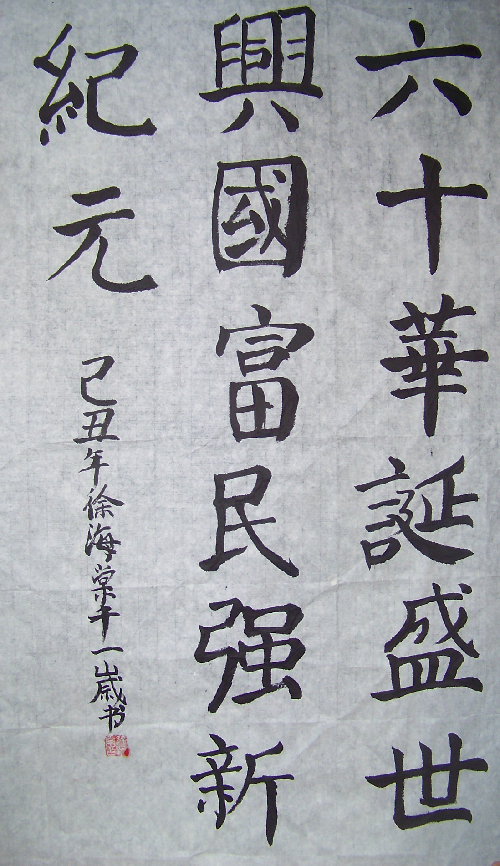 六十華誕盛世
興國富民强新
紀元
己丑年徐海棠十一歲书